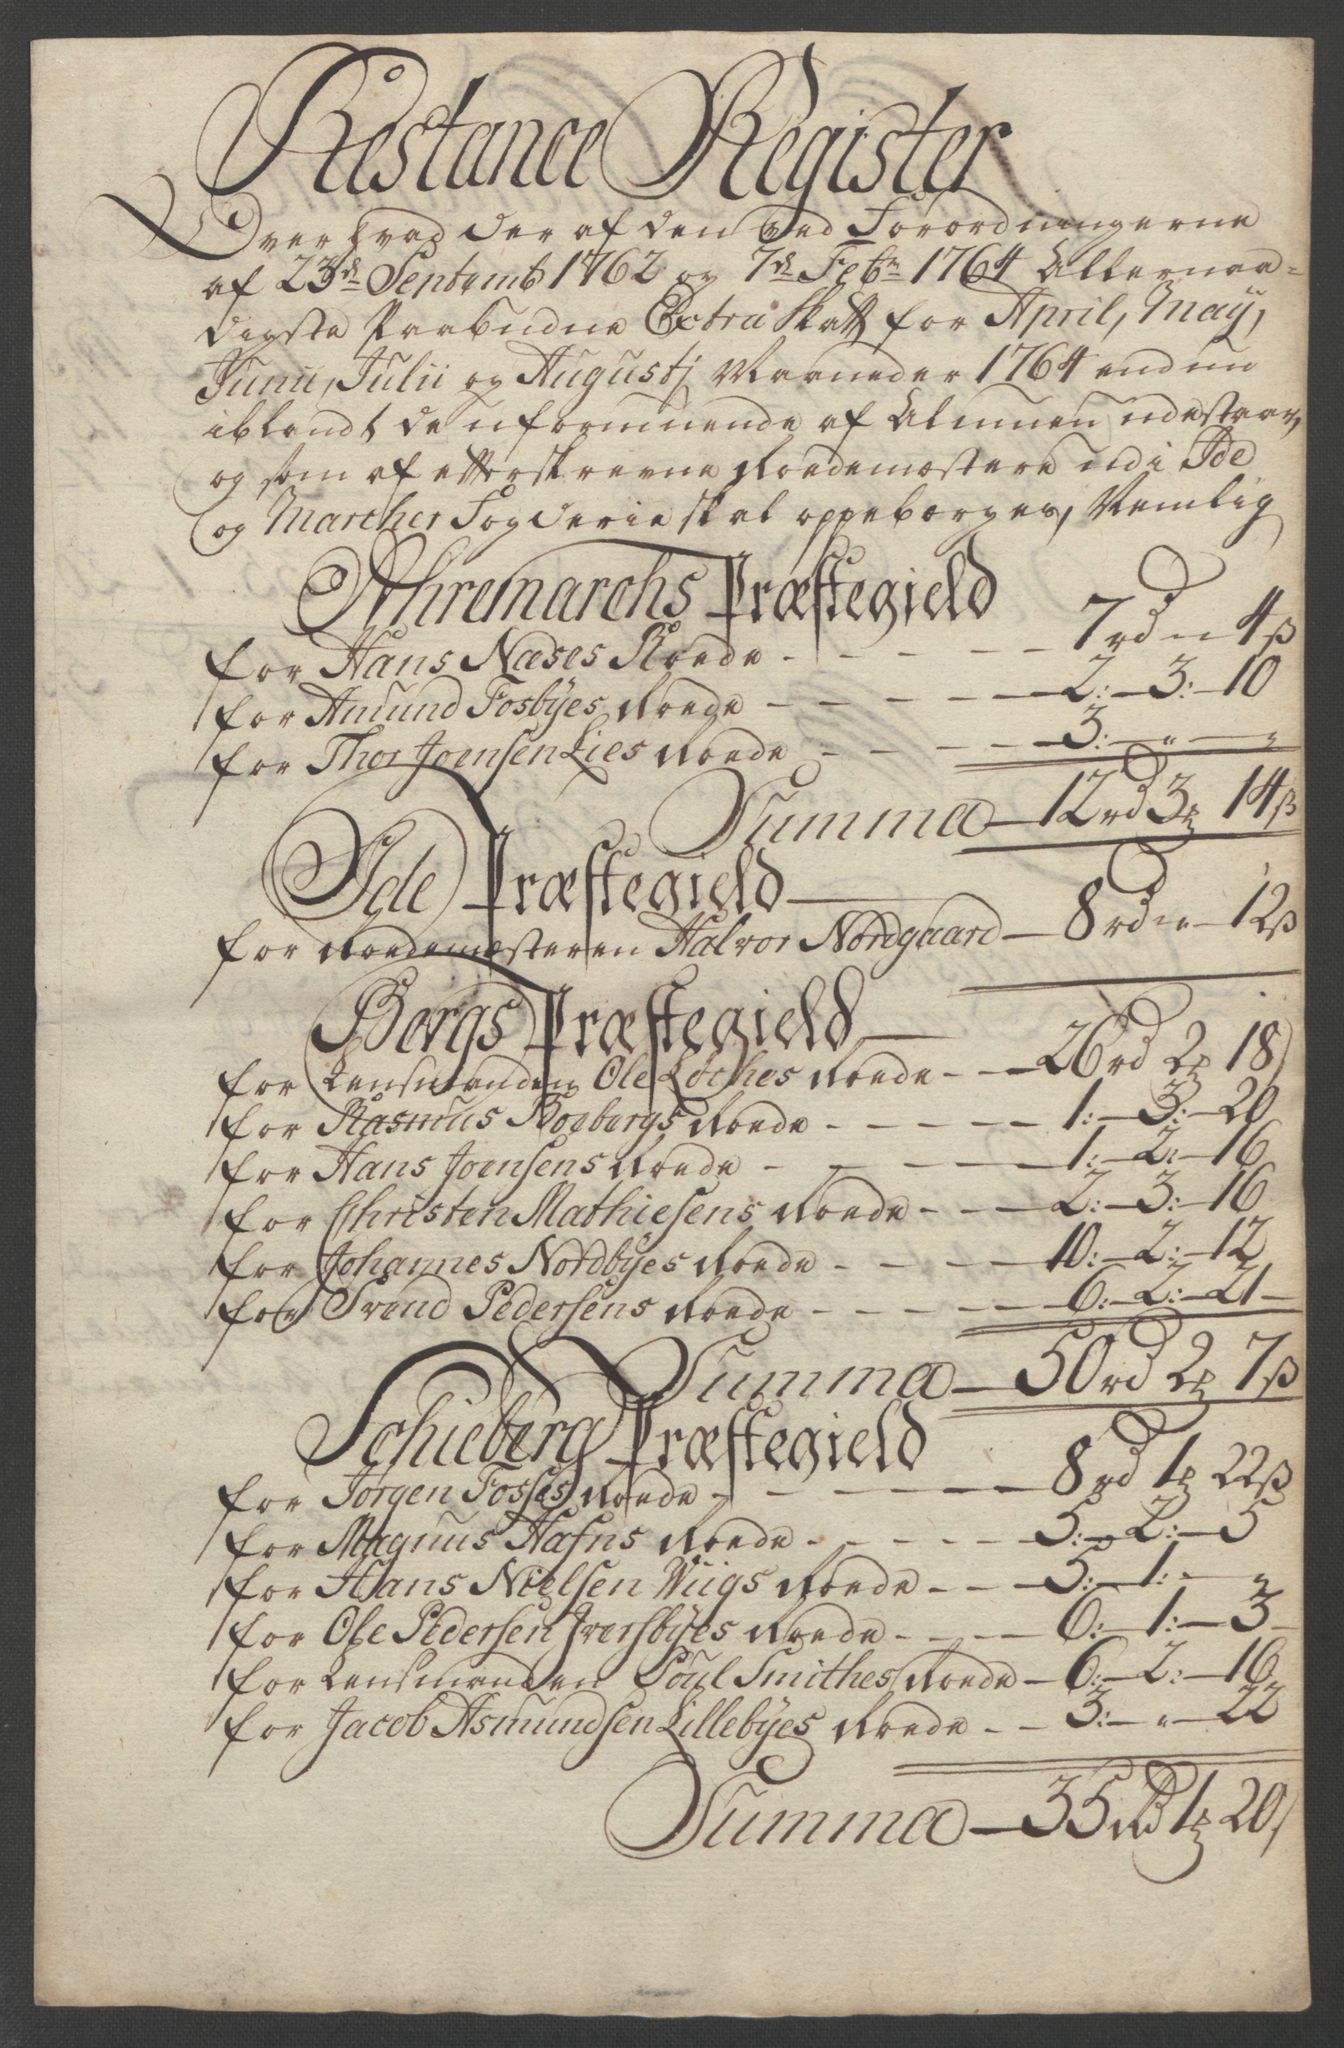 Restance Register
Over hvad der af den ved Forordningerne
af 23de Septemb 1762 og 7de Febr 1764 Allernaa-
digste Paabudne Extra Skatt for April, May,
Junii, Julii og Augustj Maaneder 1764 endnu
iblandt de uformuende af Almuen udestaar,
og som af efterskrevne Roedemestere udi Ide
og Marcher Fogderie skal oppebørges, Nemlig
Ahremarchs Præstegield
for Hans Næses Roede - 7 rd " 4 ß
for Amund Fosbyes Roede - 2: 3: 10
for Thor Joensen Lies Roede - 3: " "
Summa 12 rd 3 14 ß
Ide Præstegield
for Roedemesteren Halvor Nordgaard 8 rd " 12 ß
Bergs Præstegield
for Lensmanden Ole Løches Roede - 26 rd 2 18
for Rasmus Boebergs Roede - 1: 3: 20
for Hans Joensens Roede - 1: 2: 16
for Christen Mathiesens Roede - 2: 3: 16
for Johannes Nordbyes Roede - 10: 2: 12
for Svend Pedersens Roede - 6: 2: 21
Summa 50 rd 2 7 ß
Schieberg Præstegield
for Jørgen Fosses Roede - 8 rd 1 22 ß
for Magnus Hafns Roede - 5: 2: 5
for Hans Nielsen Viigs Roede - 5: 1: "
for Ole Pedersen Iversbyes Roede - 6: 1: 3
for Lensmanden Poul Smithes Roede 6: 2: 16
for Jacob Asmundsen Lillebyes Roede - 3: " 22
Summa 35 rd 1 20